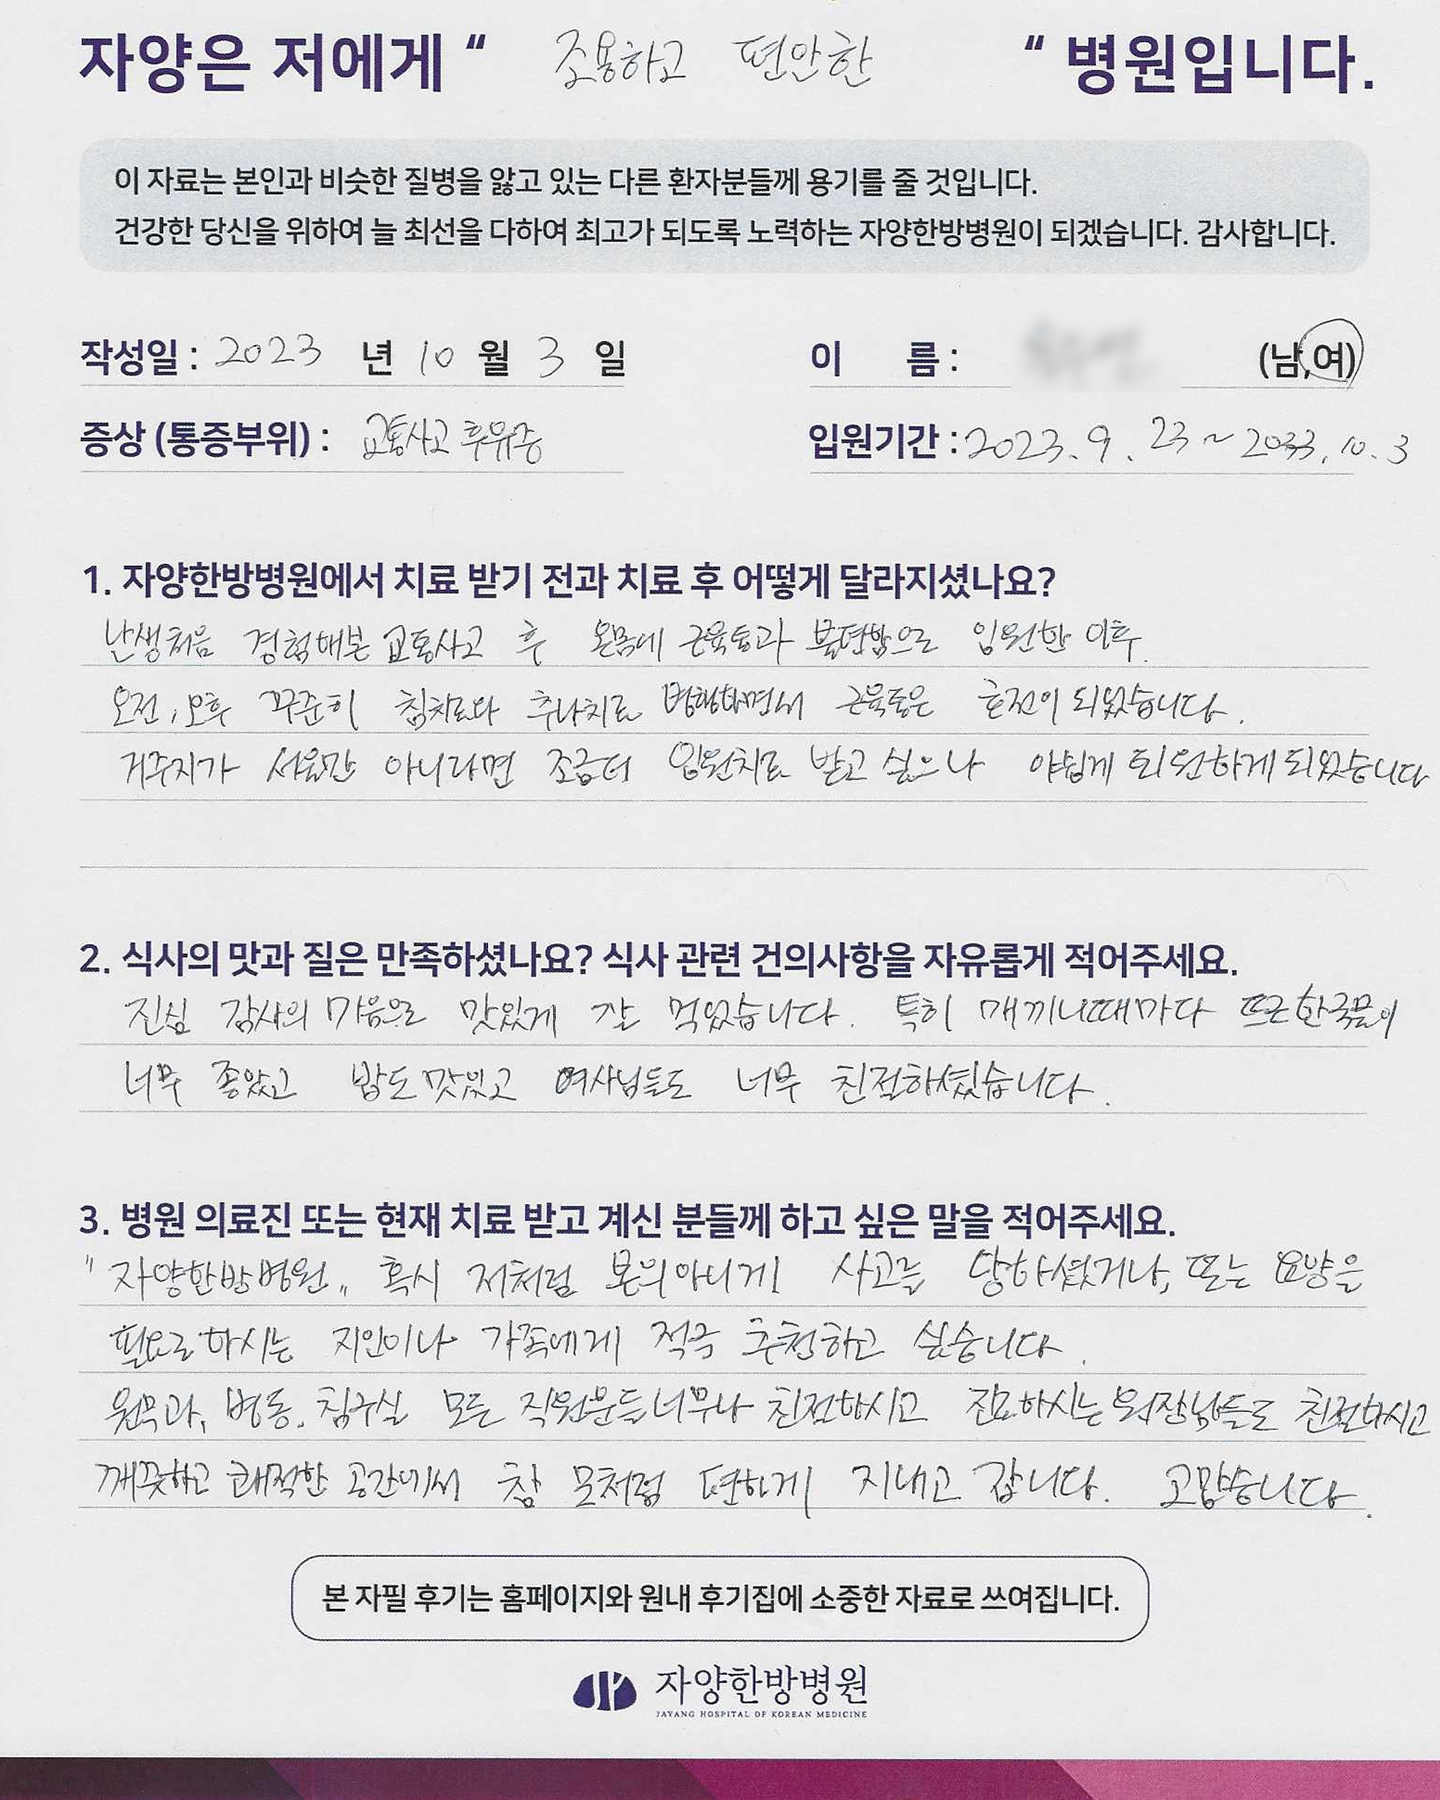 자양은 저에게 “ 조용하고 편안한 “ 병원입니다.
이 자료는 본인과 비슷한 질병을 앓고 있는 다른 환자분들께 용기를 줄 것입니다.
건강한 당신을 위하여 늘 최선을 다하여 최고가 되도록 노력하는 자양한방병원이 되겠습니다. 감사합니다.
작성일 : 2023 년 10 월 3 일 이 름 : (남,여)
증상 (통증부위) : 교통사고 후유증 입원기간 : 2023. 9. 23 ~ 2023. 10. 3
1. 자양한방병원에서 치료 받기 전과 치료 후 어떻게 달라지셨나요?
난생처음 경험해본 교통사고 후 온몸에 근육통과 불편함으로 입원한 이후.
오전, 오후 꾸준히 침치료와 추나치료 병행하면서 근육통은 호전이 되었습니다.
거주지가 서울만 아니라면 조금더 입원치료 받고 싶으나 아쉽게 퇴원하게되었습니다
2. 식사의 맛과 질은 만족하셨나요? 식사 관련 건의사항을 자유롭게 적어주세요.
진심 감사의 마음으로 맛있게 잘 먹었습니다. 특히 매끼니때마다 뜨끈한국물이
너무 좋았고 밥도 맛있고 여사님들도 너무 친절하셨습니다.
3. 병원 의료진 또는 현재 치료 받고 계신 분들께 하고 싶은 말을 적어주세요.
" 자양한방병원 " 혹시 저처럼 본의아니게 사고를 당하셨거나, 또는 요양을
필요로하시는 지인이나 가족에게 적극 추천하고 싶습니다.
원무과, 병동, 침구실 모든 직원분들너무나 친절하시고 진료하시는원장님들도 친절하시고
깨끗하고 쾌적한 공간에서 참 모처럼 편하게 지내고 갑니다. 고맙습니다.
본 자필 후기는 홈페이지와 원내 후기집에 소중한 자료로 쓰여집니다.
자양한방병원
JAYANG HOSPITAL OF KOREAN MEDICINE